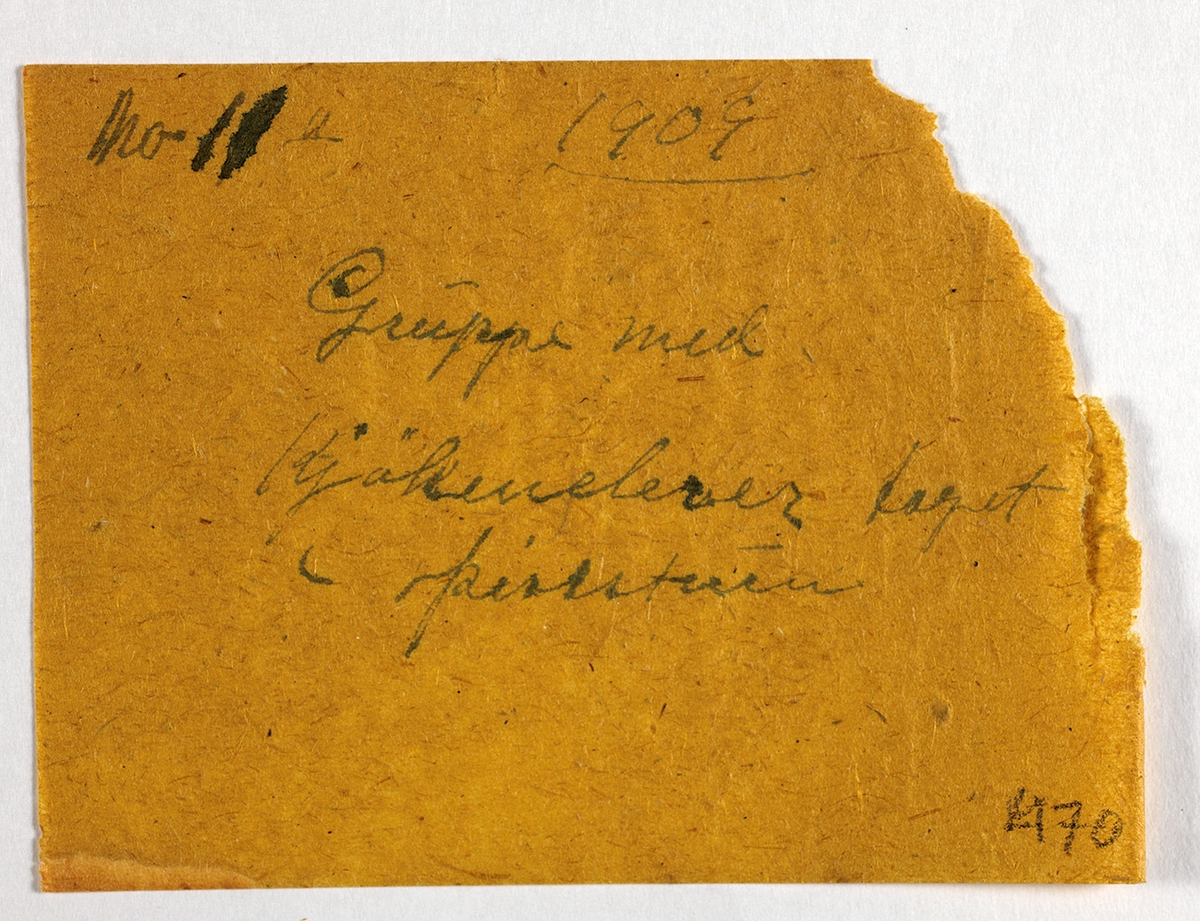 No 11 a 1909
Gruppe med
Kjökenelever taget
i spisestuen